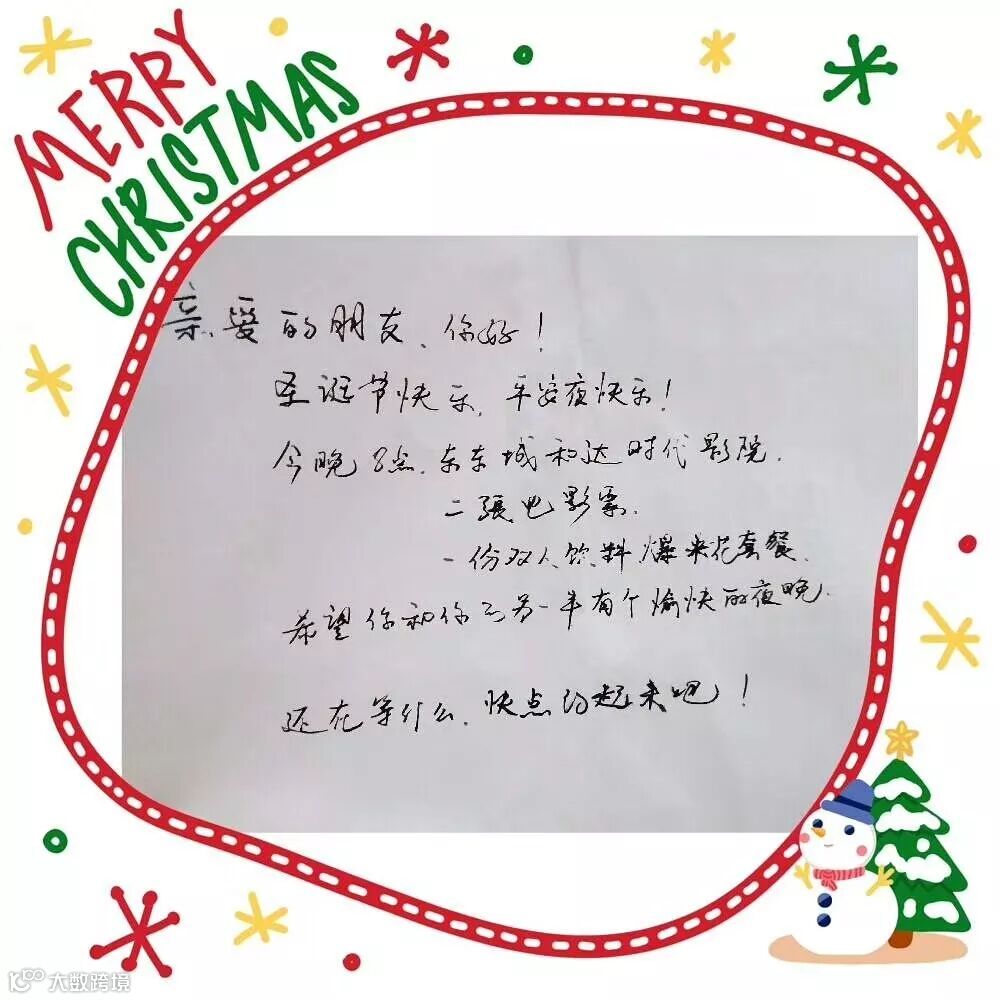 MERRY
CHRISTMAS
亲爱的朋友、你好!
圣诞节快乐,平安夜快乐!
今晚8点.东东城和达时代影院.
二張电影票.
一份双人饮料爆米花套餐.
希望你和你的另一半有个愉快的夜晚.
还在等什么.快点约起来吧!
大数跨境